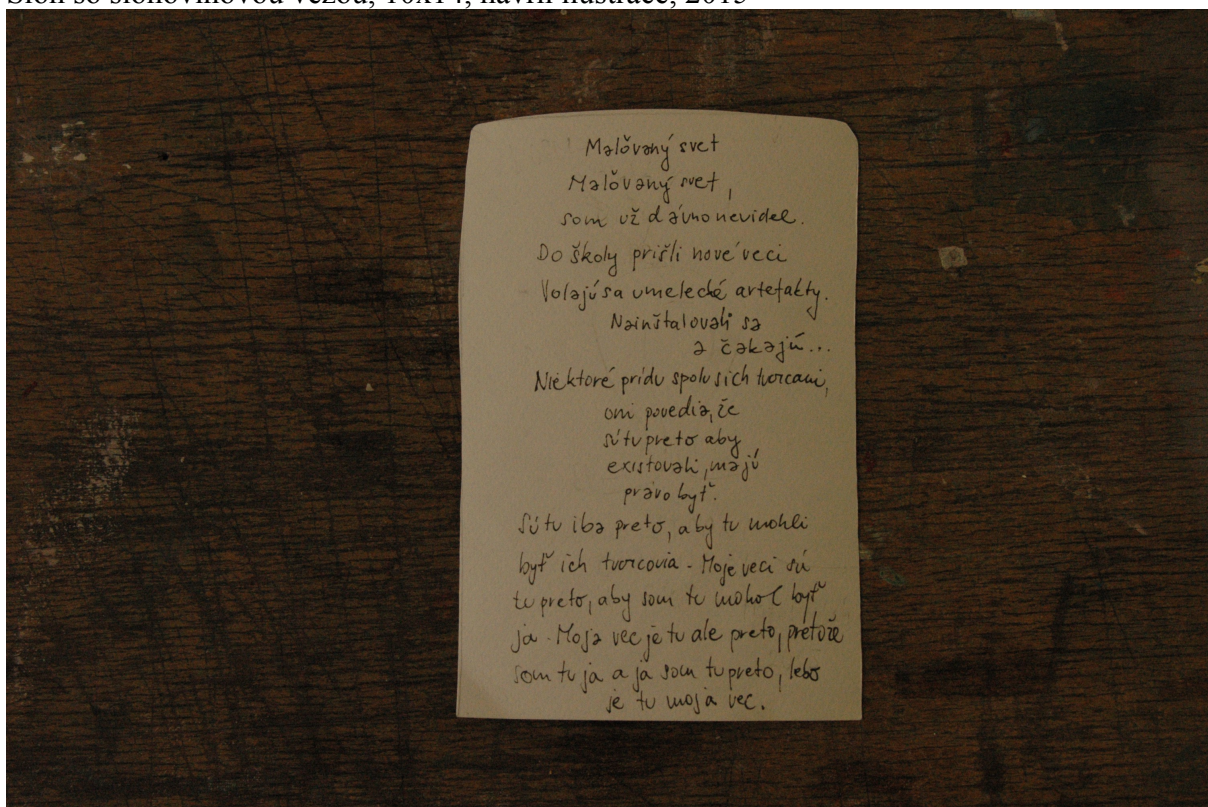 Slon so slonovinovou vežou, 10x14, návrh ilustrace, 2015
Malǒvaný svet
Malǒvaný svet,
som už dávno nevidel.
Do školy prišli nové veci
Volajú sa umelecké artefakty.
Nainštalovali sa
a čakajú...
Niektoré prídu spolu s ich tvorcami,
oni povedia, že
sú tu preto aby
existovali, majú
právo byť.
Sú tu iba preto, aby tu mohli
byť ich tvorcovia. Moje veci sú
tu preto, aby som tu mohol byť
ja. Moja vec je tu ale preto, pretože
som tu ja a ja som tu preto, lebo
je tu moja vec.